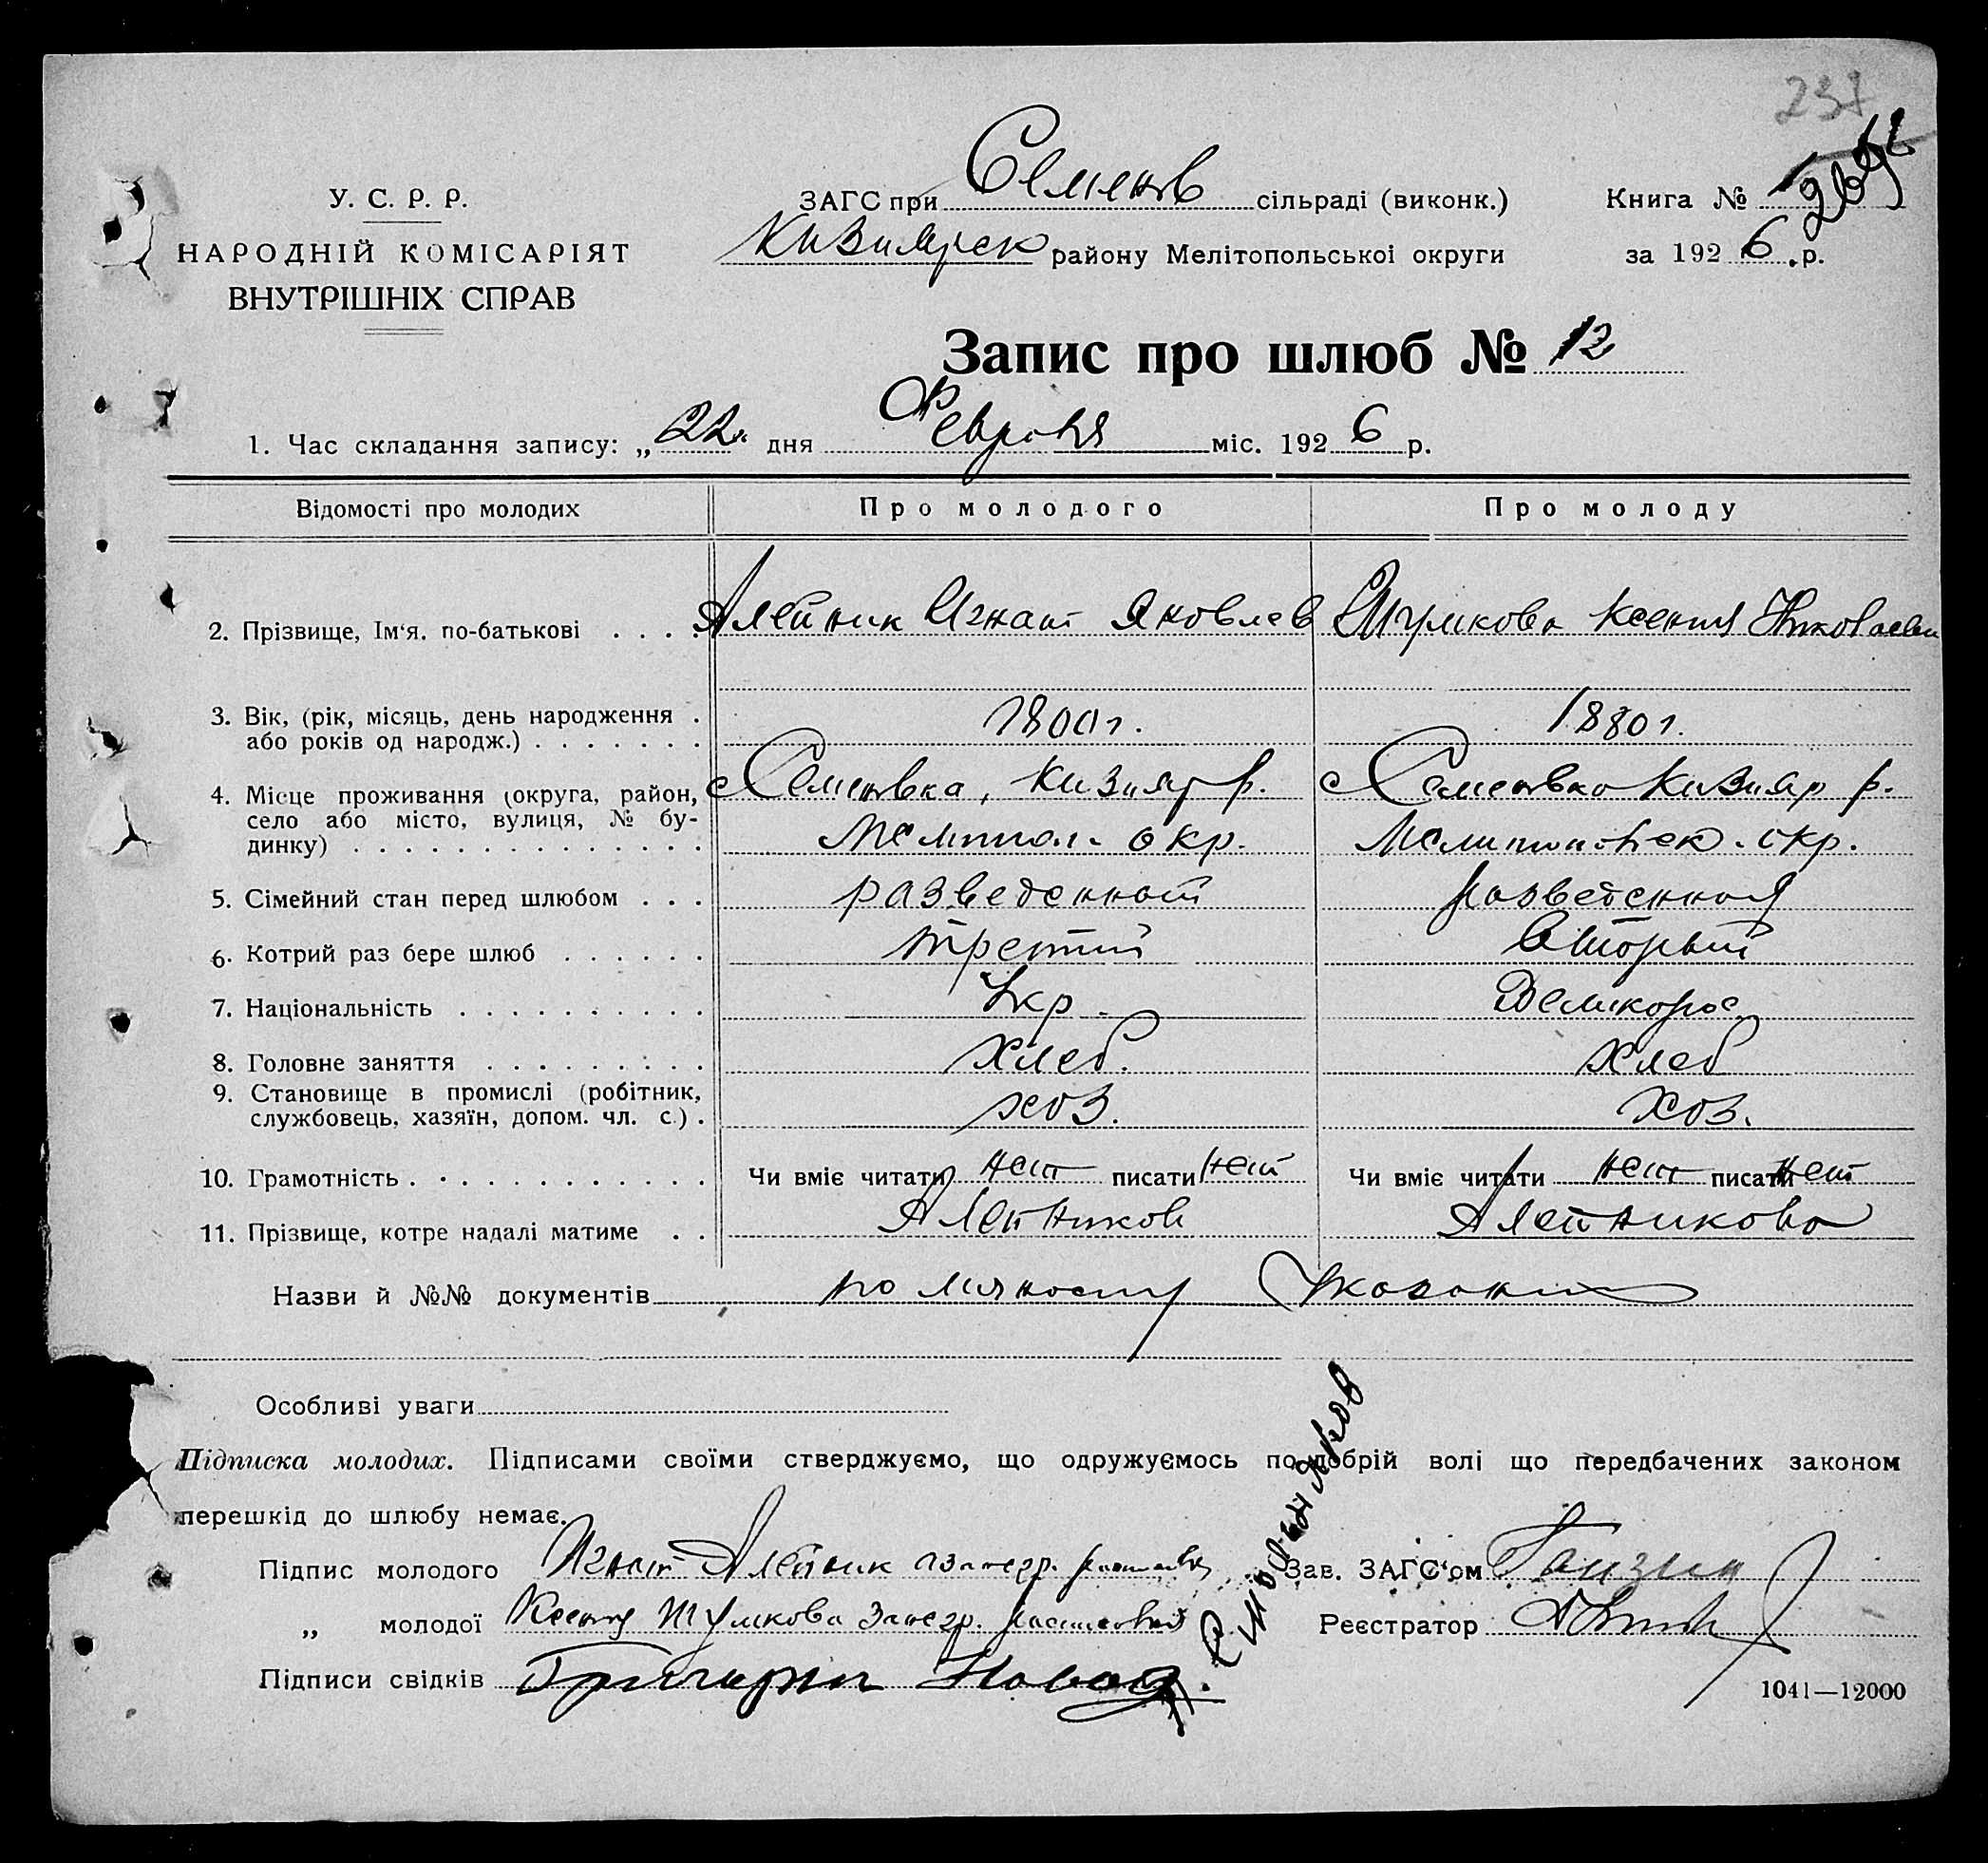 237
У. С. Р. Р.
НАРОДНІЙ КОМІСАРІЯТ
ВНУТРІШНІХ СПРАВ
ЗАГС при Семенов сільраді (виконк.)
Кизиярск району Мелітопольськоі округи
Книга №
за 1926 р.
Запис про шлюб № 12
1. Час складання запису: „22" дня Февраля міс. 1926 р.
Відомості про молодих Про молодого Про молоду
2. Прізвище, Ім'я, по-батькові . . . . Алейник Игнат Яковлев Шумкова Ксения Николаевн
3. Вік, (рік, місяць, день народження . або років од народж.) . . . . . . . 1880 г.
4. Місце проживання (округа, район, с Семеновка, Кизияр р. с Семеновка Кизияр р.
село або місто, вулиця, № бу-
динку) . . . . . . . . . . . . . . Мелитоп. окр. Мелитопольск. окр.
5. Сімейний стан перед шлюбом . . . разведенный разведенная
6. Котрий раз бере шлюб . . . . . . третий вторый
7. Національність . . . . . . . . . . Укр. Великорос.
8. Головне заняття . . . . . . . . . хлеб. хлеб
9. Становище в промислі (робітник, хоз. хоз.
службовець, хазяїн, допом. чл. с.) .
10. Грамотність . . . . . . . . . . . . Чи вміє читати нет писати нет Чи вміє читати нет писати нет
11. Прізвище, котре надалі матиме . . Алейников Алейникова
Назви й №№ документів по личному
Особливі уваги
Підписка молодих. Підписами своїми стверджуємо, що одружуємось по добрій волі що передбачених законом
перешкід до шлюбу немає.
Підпис молодого Игнат Алейник Зав. ЗАГС'ом
„ молодої Ксения Шумкова Реєстратор
Підписи свідків Григорий
1041—12000